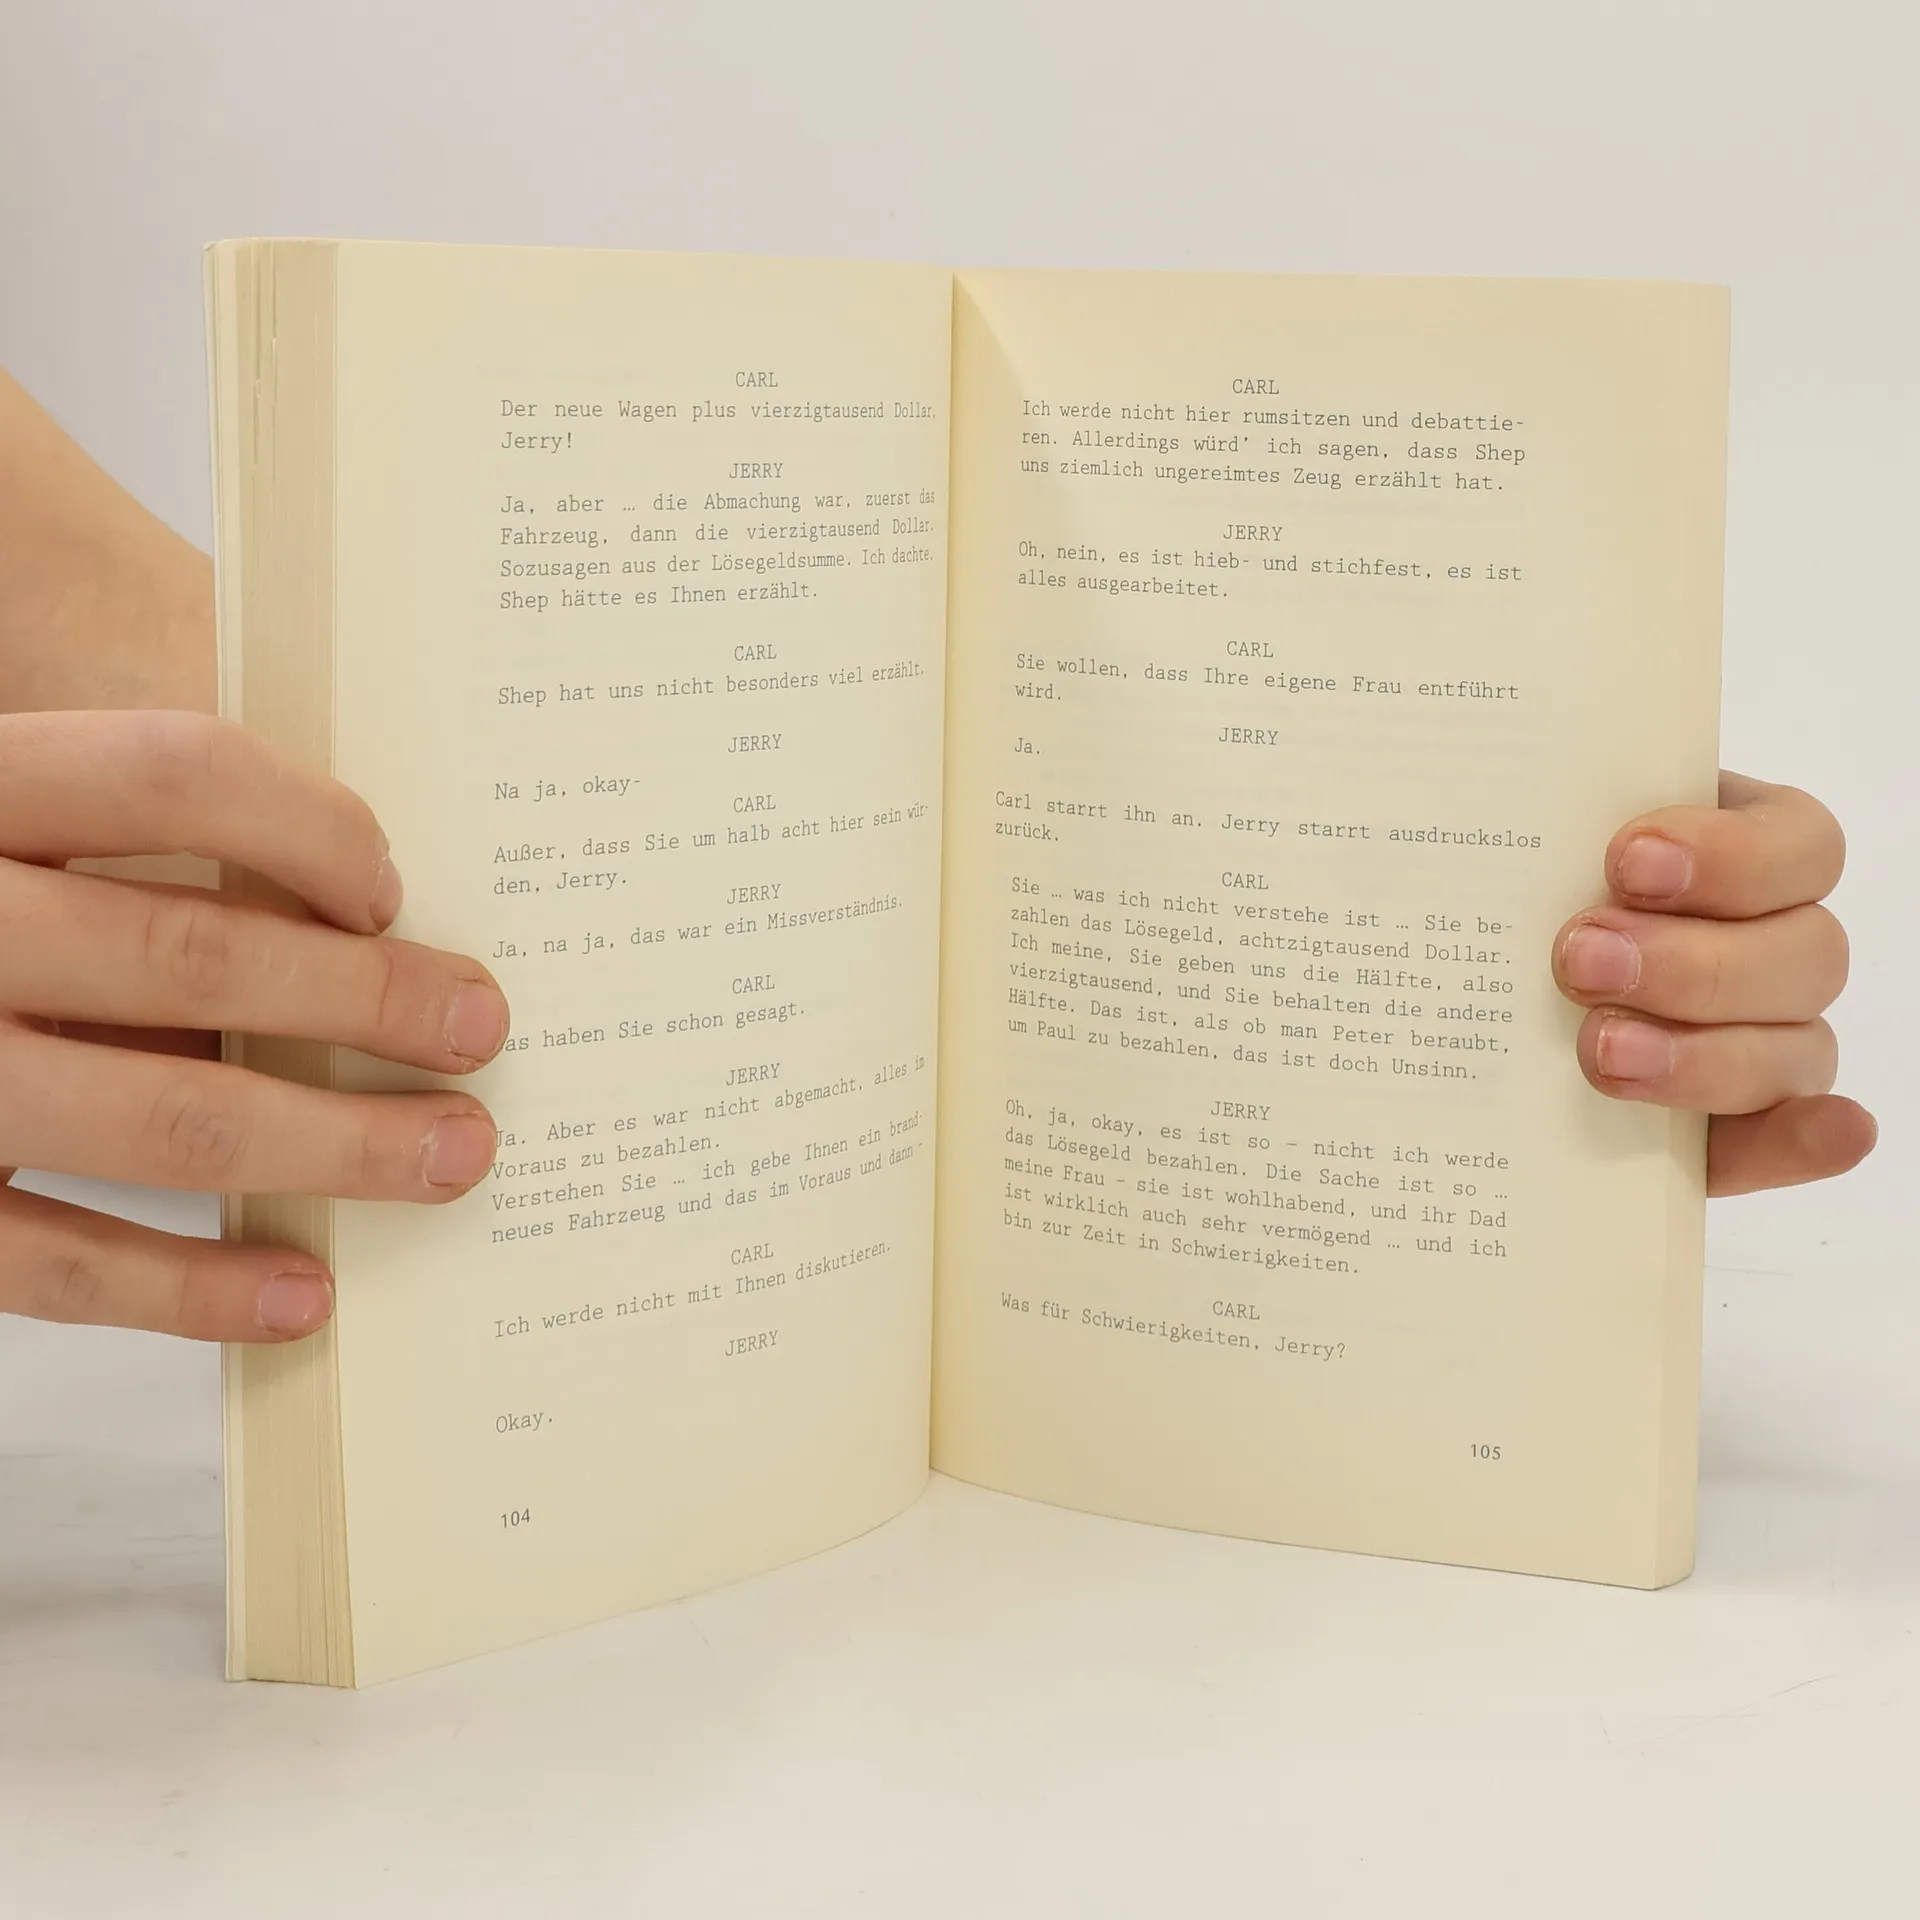 CARL
Der neue Wagen plus vierzigtausend Dollar,
Jerry!
JERRY
Ja, aber … die Abmachung war, zuerst das
Fahrzeug, dann die vierzigtausend Dollar.
Sozusagen aus der Lösegeldsumme. Ich dachte,
Shep hätte es Ihnen erzählt.
CARL
Shep hat uns nicht besonders viel erzählt.
JERRY
Na ja, okay-
CARL
Außer, dass Sie um halb acht hier sein wür-
den, Jerry.
JERRY
Ja, na ja, das war ein Missverständnis.
CARL
as haben Sie schon gesagt.
JERRY
Ja. Aber es war nicht abgemacht, alles im
Voraus zu bezahlen.
Verstehen Sie … ich gebe Ihnen ein brand-
neues Fahrzeug und das im Voraus und dann -
CARL
Ich werde nicht mit Ihnen diskutieren.
JERRY
Okay.
104
CARL
Ich werde nicht hier rumsitzen und debattie-
ren. Allerdings würd' ich sagen, dass Shep
uns ziemlich ungereimtes Zeug erzählt hat.
JERRY
Oh, nein, es ist hieb- und stichfest, es ist
alles ausgearbeitet.
CARL
Sie wollen, dass Ihre eigene Frau entführt
wird.
JERRY
Ja.
Carl starrt ihn an. Jerry starrt ausdruckslos
zurück.
CARL
Sie … was ich nicht verstehe ist … Sie be-
zahlen das Lösegeld, achtzigtausend Dollar.
Ich meine, Sie geben uns die Hälfte, also
vierzigtausend, und Sie behalten die andere
Hälfte. Das ist, als ob man Peter beraubt,
um Paul zu bezahlen, das ist doch Unsinn.
JERRY
Oh, ja, okay, es ist so – nicht ich werde
das Lösegeld bezahlen. Die Sache ist so …
meine Frau – sie ist wohlhabend, und ihr Dad
ist wirklich auch sehr vermögend … und ich
bin zur Zeit in Schwierigkeiten.
CARL
Was für Schwierigkeiten, Jerry?
105